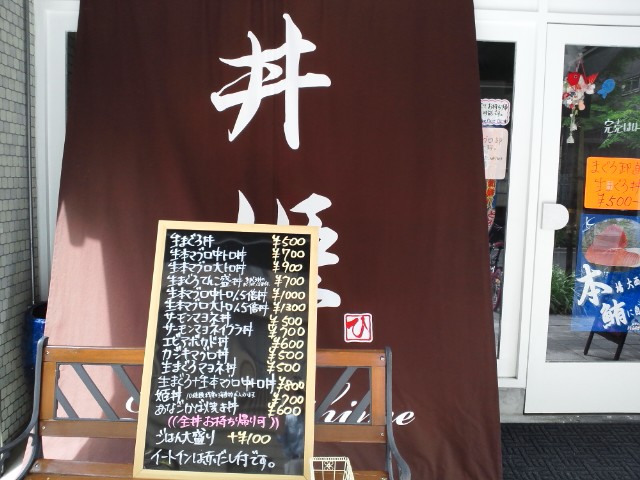 丼
姫
ひ
hime
生まぐろ丼 ¥500
生本マグロ中トロ丼 ¥700
生本マグロ大トロ丼 ¥900
生まぐろてんこ盛丼 ¥700
生本マグロ中トロ1.5倍丼 ¥1000
生本マグロ大トロ1.5倍丼 ¥1300
サーモンマヨネ丼 ¥500
サーモンマヨネイクラ丼 ¥700
エビアボカド丼 ¥600
カジキマグロ丼 ¥500
生まぐろマヨネ丼 ¥500
生まぐろ+生本マグロ中トロ丼 ¥800
姫丼 ¥700
あなご ¥600
((全丼お持ち帰り可))
ごはん大盛り +¥100
イートインは赤だし付です。
まぐろ
生まぐろ丼
¥500-
本鮪